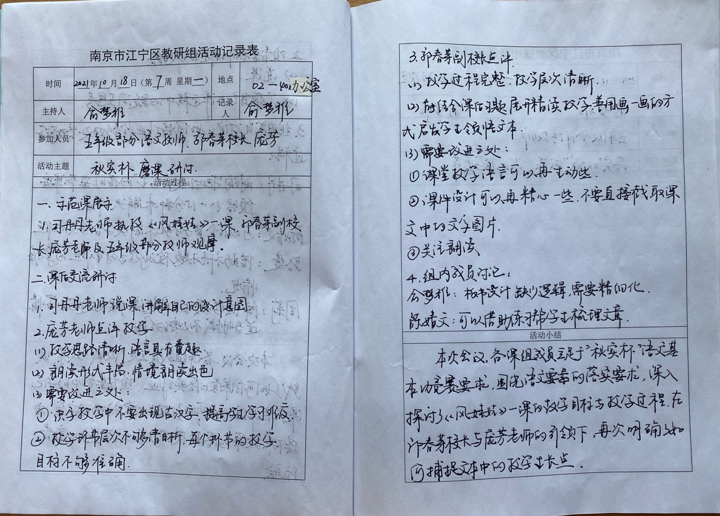 南京市江宁区教研组活动记录表
时间 2021年10月18日(第7周 星期一) 地点 02-401办公室
主持人 俞梦雅 记录人 俞梦雅
参加人员 五年级部分语文教师、邵春芽校长、庞芳
活动主题 秋实杯 磨课研讨
活动过程
一、示范课展示
1. 司丹丹老师执教《风娃娃》一课,邵春芽副校
长、庞芳老师及五年级部分教师观摩。
二、课后交流研讨
1. 司丹丹老师说课,讲解自己的设计意图
2. 庞芳老师点评教学
(1) 教学思路清晰,语言具有童趣
(2) 朗读形式丰富,情境朗读出色
(3) 需要改进之处:
① 识字教学中不要出现古汉字,提高学生学习难度
② 教学环节层次不够清晰,每个环节的教学
目标不够准确.
3. 邵春芽副校长点评
(1) 教学过程完整,教学层次清晰.
(2) 能结合课后习题展开精读教学,善用画一画的方
式启发学生领悟文本.
(3) 需要改进之处:
① 课堂教学语言可以再生动些.
② 课件设计可以再精心一些,不要直接截取课
文中的文字图片.
③ 关注朗读
4. 组内成员讨论:
俞梦雅:板书设计缺少逻辑,需要精细化.
陈婧文:可以借助板书帮学生梳理文章.
活动小结
本次会议,备课组成员立足于“秋实杯”语文基
本功竞赛要求,围绕语文要素的落实要求,深入
探讨了《风娃娃》一课的教学目标与教学过程.在
邵春芽校长与庞芳老师的引领下,再次明确如
何捕捉文本中的教学生长点.